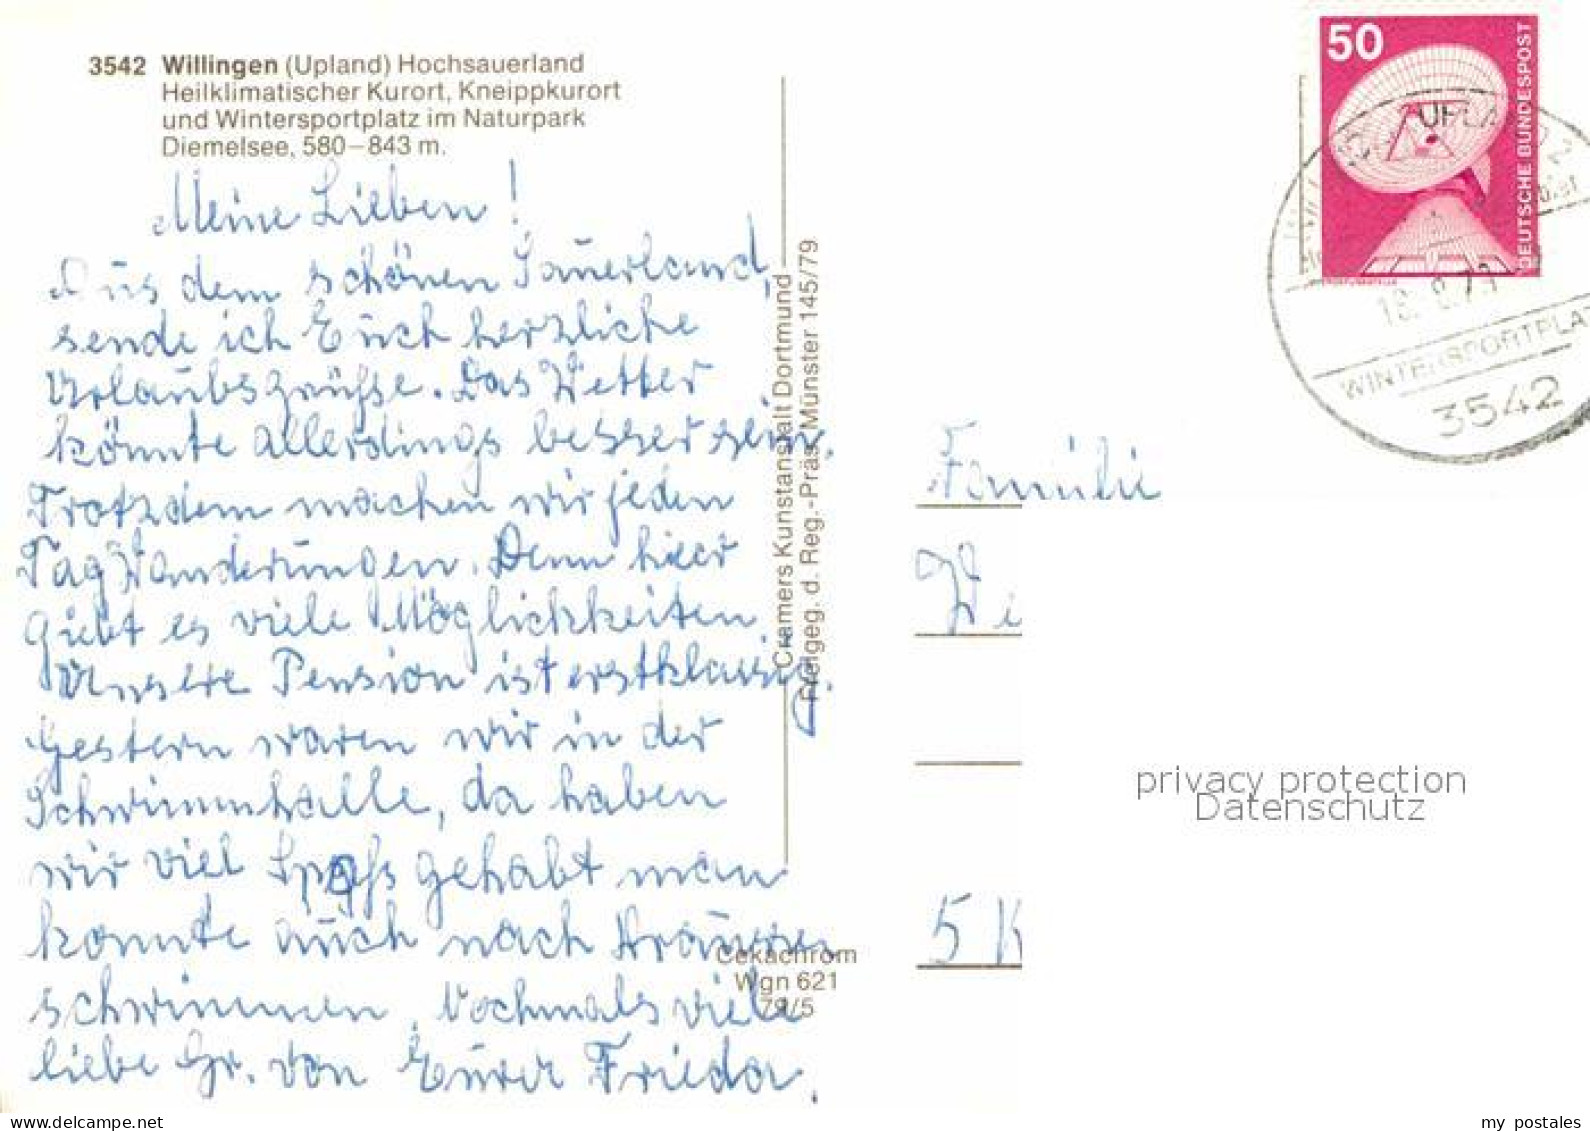 3542 Willingen (Upland) Hochsauerland
Heilklimatischer Kurort, Kneippkurort
und Wintersportplatz im Naturpark
Diemelsee, 580–843 m.
Meine Lieben!
Aus dem schönen Sauerland,
sende ich Euch herzliche
Urlaubsgrüße. Das Wetter
könnte allerdings besser sein.
Trotzdem machen wir jeden
Tag Wanderungen. Denn hier
giebt es viele Möglichkeiten.
Unsere Pension ist erstklassig.
Gestern waren wir in der
Schwimmhalle, da haben
wir viel Spaß gehabt man
konnte auch nach draussen
schwimmen. Nochmals viele
liebe Gr. von Eurer Frieda.
Cramers Kunstanstalt Dortmund
Freigeg. d. Reg.-Präs. Münster 145/79
Cekachrom
Wgn 621
79/5
50
DEUTSCHE BUNDESPOST
WINTERSPORTPLATZ
3542
Familie
Wi
5 K
privacy protection
Datenschutz
my postales